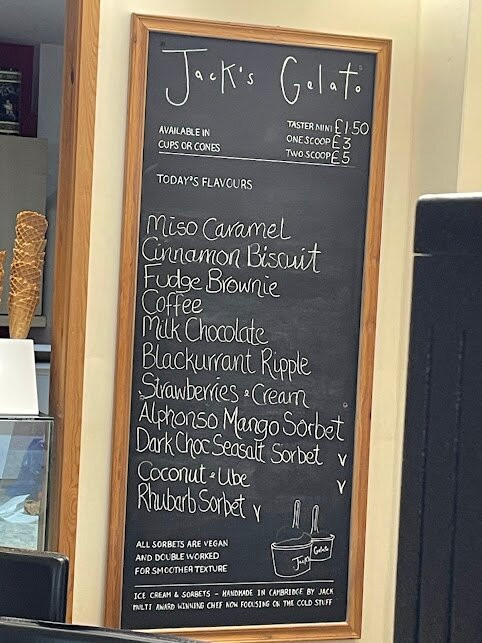 Jack's Gelato
AVAILABLE IN
CUPS OR CONES
TASTER MINI £1.50
ONE SCOOP £3
TWO SCOOP £5
TODAY'S FLAVOURS
Miso Caramel
Cinnamon Biscuit
Fudge Brownie
Coffee
Milk Chocolate
Blackurrant Ripple
Strawberries & Cream
Alphonso Mango Sorbet
Dark Choc Seasalt Sorbet V
Coconut & Ube V
Rhubarb Sorbet V
ALL SORBETS ARE VEGAN
AND DOUBLE WORKED
FOR SMOOTHER TEXTURE
Jack's Gelato
ICE CREAM & SORBETS - HANDMADE IN CAMBRIDGE BY JACK
MULTI AWARD WINNING CHEF NOW FOCUSING ON THE COLD STUFF